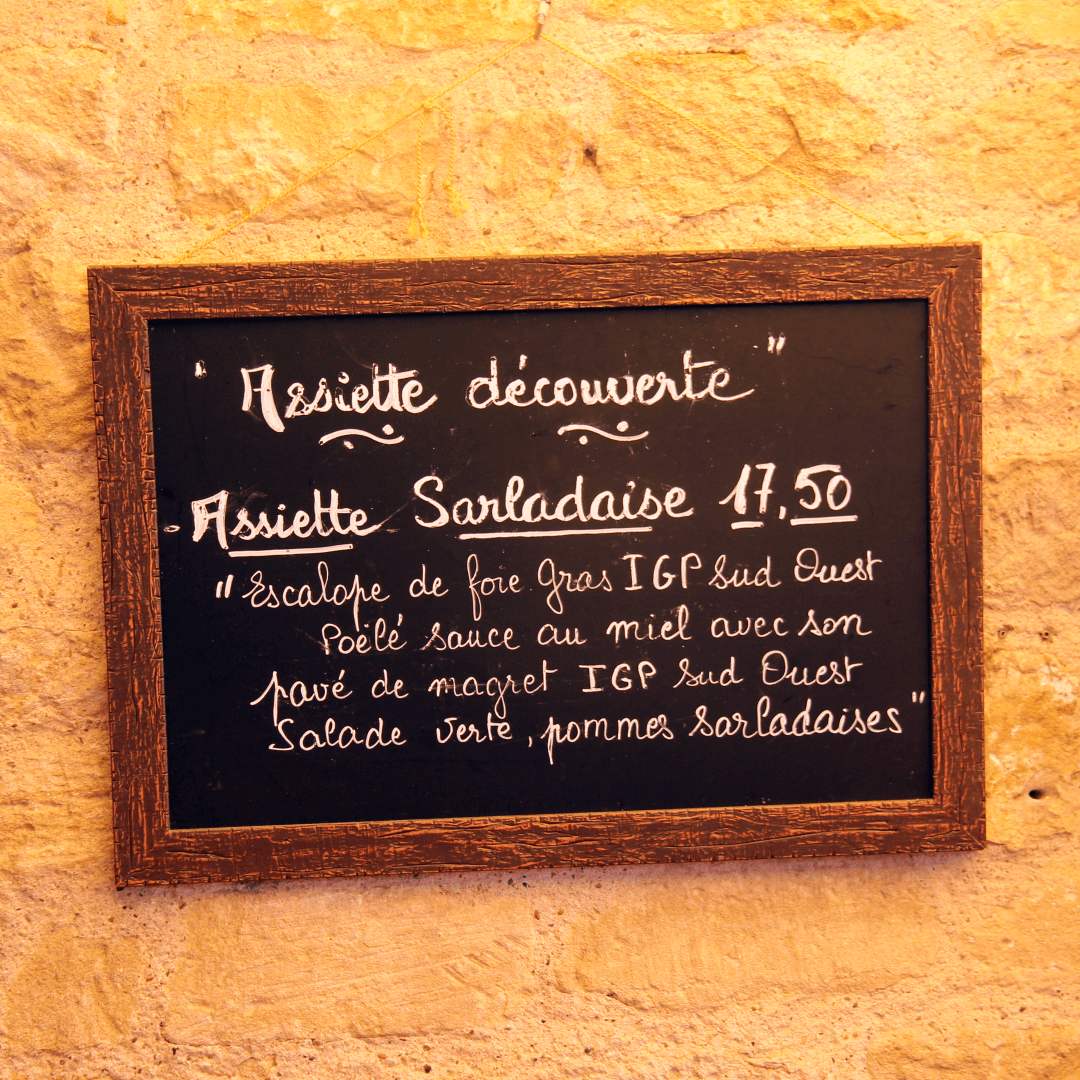 " Assiette découverte "
- Assiette Sarladaise 17,50
" Escalope de foie gras IGP Sud Ouest
Poëlé sauce au miel avec son
pavé de magret IGP Sud Ouest
Salade verte, pommes sarladaises "